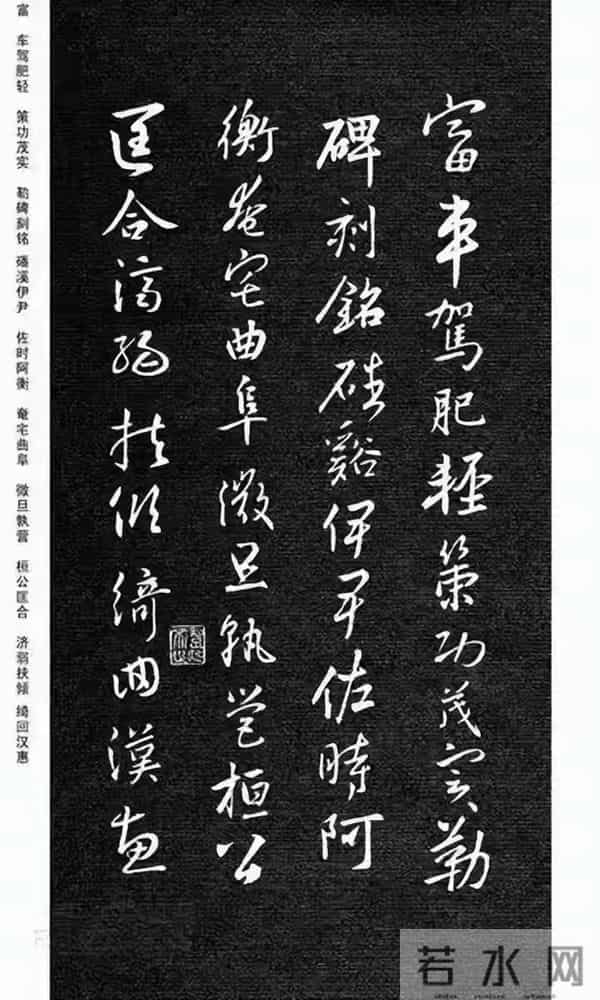 富車駕肥輕策功茂實勒
碑刻銘磻谿伊尹佐時阿
衡奄宅曲阜微旦孰營桓公
匡合濟弱扶傾綺回漢惠
富 车驾肥轻 策功茂实 勒碑刻铭 磻溪伊尹 佐时阿衡 奄宅曲阜 微旦孰营 桓公匡合 济弱扶倾 绮回汉惠
若水网